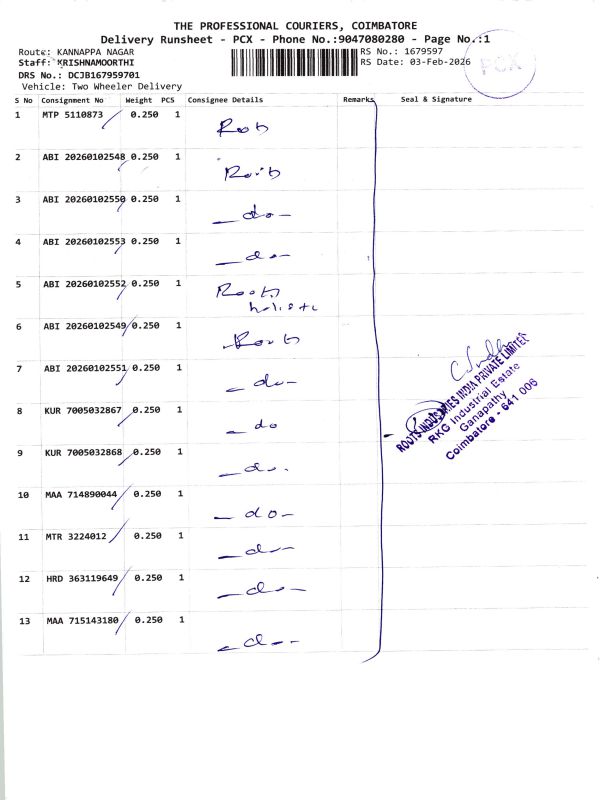 THE PROFESSIONAL COURIERS, COIMBATORE
Delivery Runsheet - PCX - Phone No.:9047080280 - Page No.:1
Route: KANNAPPA NAGAR
RS No.: 1679597
Staff: KRISHNAMOORTHI
RS Date: 03-Feb-2026
PCX
DRS No.: DCJB167959701
Vehicle: Two Wheeler Delivery
S No Consignment No Weight PCS Consignee Details Remarks Seal & Signature
1 MTP 5110873 0.250 1
2 ABI 20260102548 0.250 1
3 ABI 20260102550 0.250 1 - do -
4 ABI 20260102553 0.250 1 - do -
5 ABI 20260102552 0.250 1 Roots
6 ABI 20260102549 0.250 1
7 ABI 20260102551 0.250 1 - do -
8 KUR 7005032867 0.250 1 - do
9 KUR 7005032868 0.250 1 - do.
10 MAA 714890044 0.250 1 - do -
11 MTR 3224012 0.250 1 - do -
12 HRD 363119649 0.250 1 - do -
13 MAA 715143180 0.250 1 - do -
ROOTS INDUSTRIES INDIA PRIVATE LIMITED
RKG Industrial Estate
Ganapathy
Coimbatore - 641 006